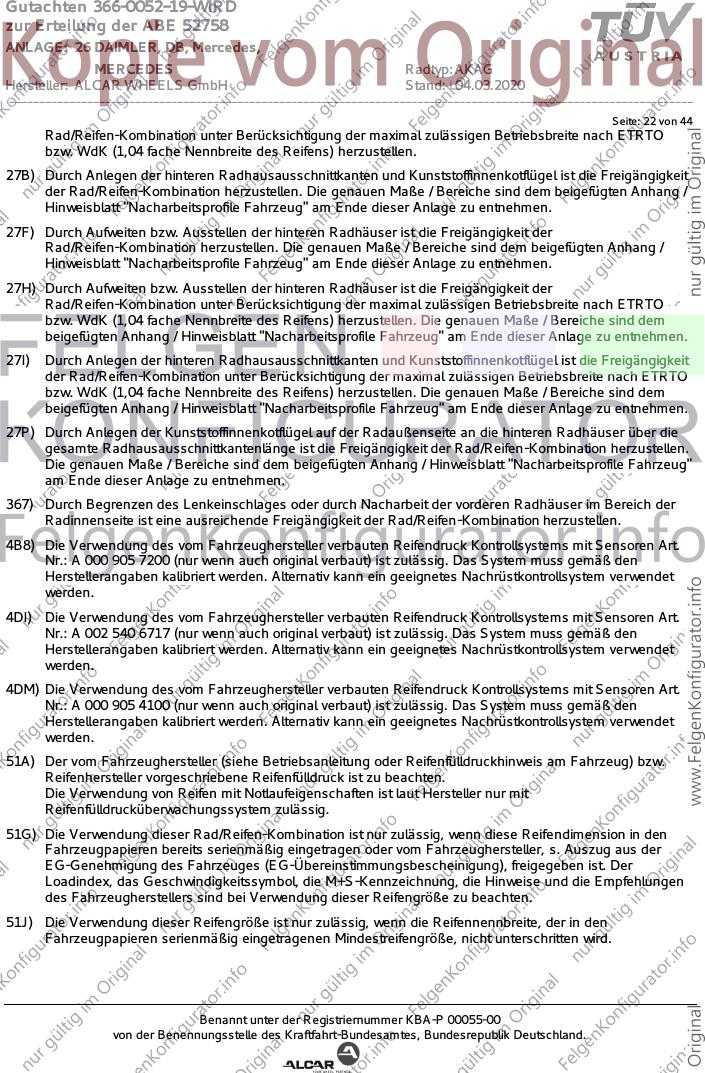 Gutachten 366-0052-19-WIRD
zur Erteilung der ABE 52758
ANLAGE: 26 DAIMLER, DB, Mercedes,
MERCEDES
Radtyp: AKAG
Hersteller: ALCAR WHEELS GmbH
Stand: 04.03.2020
TÜV
AUSTRIA
Kopie vom Original
Seite: 22 von 44
Rad/Reifen-Kombination unter Berücksichtigung der maximal zulässigen Betriebsbreite nach ETRTO
bzw. WdK (1,04 fache Nennbreite des Reifens) herzustellen.
27B) Durch Anlegen der hinteren Radhausausschnittkanten und Kunststoffinnenkotflügel ist die Freigängigkeit
der Rad/Reifen-Kombination herzustellen. Die genauen Maße / Bereiche sind dem beigefügten Anhang /
Hinweisblatt "Nacharbeitsprofile Fahrzeug" am Ende dieser Anlage zu entnehmen.
27F) Durch Aufweiten bzw. Ausstellen der hinteren Radhäuser ist die Freigängigkeit der
Rad/Reifen-Kombination herzustellen. Die genauen Maße / Bereiche sind dem beigefügten Anhang /
Hinweisblatt "Nacharbeitsprofile Fahrzeug" am Ende dieser Anlage zu entnehmen.
27H) Durch Aufweiten bzw. Ausstellen der hinteren Radhäuser ist die Freigängigkeit der
Rad/Reifen-Kombination unter Berücksichtigung der maximal zulässigen Betriebsbreite nach ETRTO
bzw. WdK (1,04 fache Nennbreite des Reifens) herzustellen. Die genauen Maße / Bereiche sind dem
beigefügten Anhang / Hinweisblatt "Nacharbeitsprofile Fahrzeug" am Ende dieser Anlage zu entnehmen.
27I) Durch Anlegen der hinteren Radhausausschnittkanten und Kunststoffinnenkotflügel ist die Freigängigkeit
der Rad/Reifen-Kombination unter Berücksichtigung der maximal zulässigen Betriebsbreite nach ETRTO
bzw. WdK (1,04 fache Nennbreite des Reifens) herzustellen. Die genauen Maße / Bereiche sind dem
beigefügten Anhang / Hinweisblatt "Nacharbeitsprofile Fahrzeug" am Ende dieser Anlage zu entnehmen.
27P) Durch Anlegen der Kunststoffinnenkotflügel auf der Radaußenseite an die hinteren Radhäuser über die
gesamte Radhausausschnittkantenlänge ist die Freigängigkeit der Rad/Reifen-Kombination herzustellen.
Die genauen Maße / Bereiche sind dem beigefügten Anhang / Hinweisblatt "Nacharbeitsprofile Fahrzeug"
am Ende dieser Anlage zu entnehmen.
367) Durch Begrenzen des Lenkeinschlages oder durch Nacharbeit der vorderen Radhäuser im Bereich der
Radinnenseite ist eine ausreichende Freigängigkeit der Rad/Reifen-Kombination herzustellen.
4B8) Die Verwendung des vom Fahrzeughersteller verbauten Reifendruck Kontrollsystems mit Sensoren Art.
Nr.: A 000 905 7200 (nur wenn auch original verbaut) ist zulässig. Das System muss gemäß den
Herstellerangaben kalibriert werden. Alternativ kann ein geeignetes Nachrüstkontrollsystem verwendet
werden.
4DI) Die Verwendung des vom Fahrzeughersteller verbauten Reifendruck Kontrollsystems mit Sensoren Art.
Nr.: A 002 540 6717 (nur wenn auch original verbaut) ist zulässig. Das System muss gemäß den
Herstellerangaben kalibriert werden. Alternativ kann ein geeignetes Nachrüstkontrollsystem verwendet
werden.
4DM) Die Verwendung des vom Fahrzeughersteller verbauten Reifendruck Kontrollsystems mit Sensoren Art.
Nr.: A 000 905 4100 (nur wenn auch original verbaut) ist zulässig. Das System muss gemäß den
Herstellerangaben kalibriert werden. Alternativ kann ein geeignetes Nachrüstkontrollsystem verwendet
werden.
51A) Der vom Fahrzeughersteller (siehe Betriebsanleitung oder Reifenfülldruckhinweis am Fahrzeug) bzw.
Reifenhersteller vorgeschriebene Reifenfülldruck ist zu beachten.
Die Verwendung von Reifen mit Notlaufeigenschaften ist laut Hersteller nur mit
Reifenfülldrucküberwachungssystem zulässig.
51G) Die Verwendung dieser Rad/Reifen-Kombination ist nur zulässig, wenn diese Reifendimension in den
Fahrzeugpapieren bereits serienmäßig eingetragen oder vom Fahrzeughersteller, s. Auszug aus der
EG-Genehmigung des Fahrzeuges (EG-Übereinstimmungsbescheinigung), freigegeben ist. Der
Loadindex, das Geschwindigkeitssymbol, die M+S-Kennzeichnung, die Hinweise und die Empfehlungen
des Fahrzeugherstellers sind bei Verwendung dieser Reifengröße zu beachten.
51J) Die Verwendung dieser Reifengröße ist nur zulässig, wenn die Reifennennbreite, der in den
Fahrzeugpapieren serienmäßig eingetragenen Mindestreifengröße, nicht unterschritten wird.
Benannt unter der Registriernummer KBA-P 00055-00
von der Benennungsstelle des Kraftfahrt-Bundesamtes, Bundesrepublik Deutschland.
ALCAR
FELGEN
KONFIGURATOR
FelgenKonfigurator.info
nur gültig im Original
www.FelgenKonfigurator.info